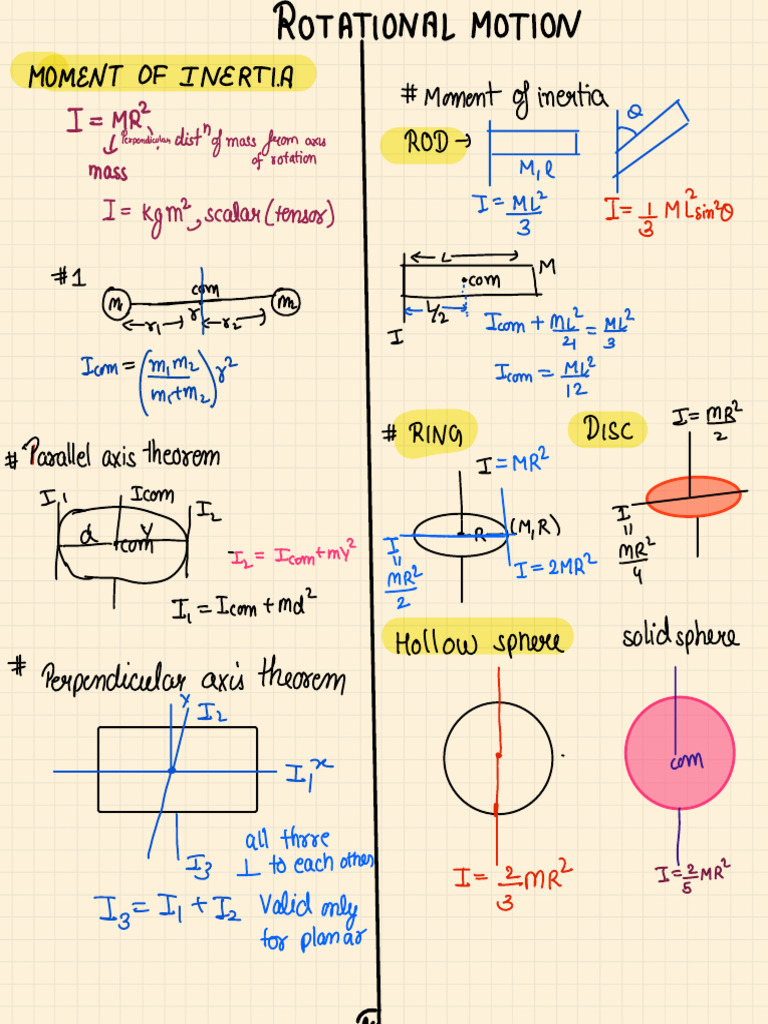 ROTATIONAL MOTION
MOMENT OF INERTIA
I = MR²
Perpendicular distⁿ of mass from axis
of rotation
mass
I = kgm², scalar (tensor)
#1
com
m₁ r m₂
r₁ r₂
Icom = (m₁m₂ / m₁+m₂) r²
# Parallel axis theorem
I₁ Icom I₂
d y
com
I₂ = Icom + my²
I₁ = Icom + md²
# Perpendicular axis theorem
y I₂
I₁ x
I₃
all three
⊥ to each other
I₃ = I₁ + I₂ Valid only
for planar
# Moment of inertia
ROD →
θ
M, l
I = ML²/3
I = 1/3 ML² sin²θ
L
M
com
L/2
I
Icom + ML²/4 = ML²/3
Icom = ML²/12
# RING
I = MR²
R (M, R)
I = MR²/2
I = 2MR²
DISC
I = MR²/2
I = MR²/4
Hollow sphere
I = 2/3 MR²
solid sphere
com
I = 2/5 MR²